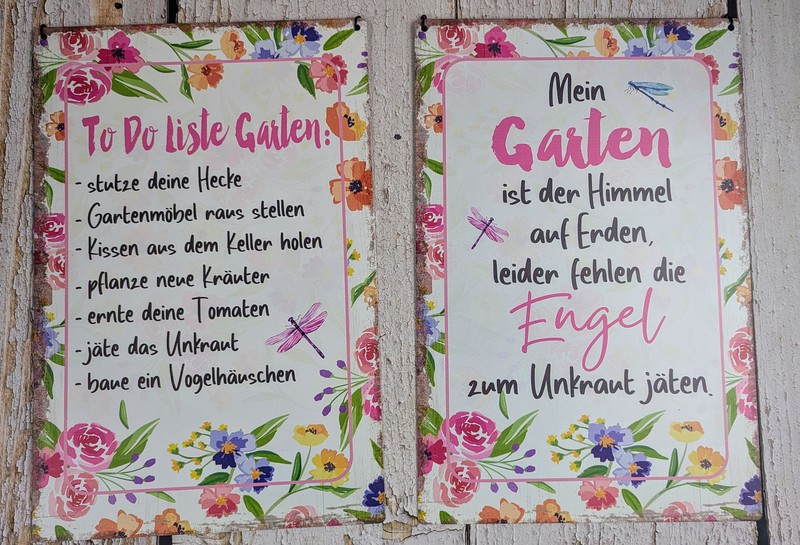 To Do Liste Garten:
- stutze deine Hecke
- Gartenmöbel raus stellen
- Kissen aus dem Keller holen
- pflanze neue Kräuter
- ernte deine Tomaten
- jäte das Unkraut
- baue ein Vogelhäuschen
Mein
Garten
ist der Himmel
auf Erden,
leider fehlen die
Engel
zum Unkraut jäten.